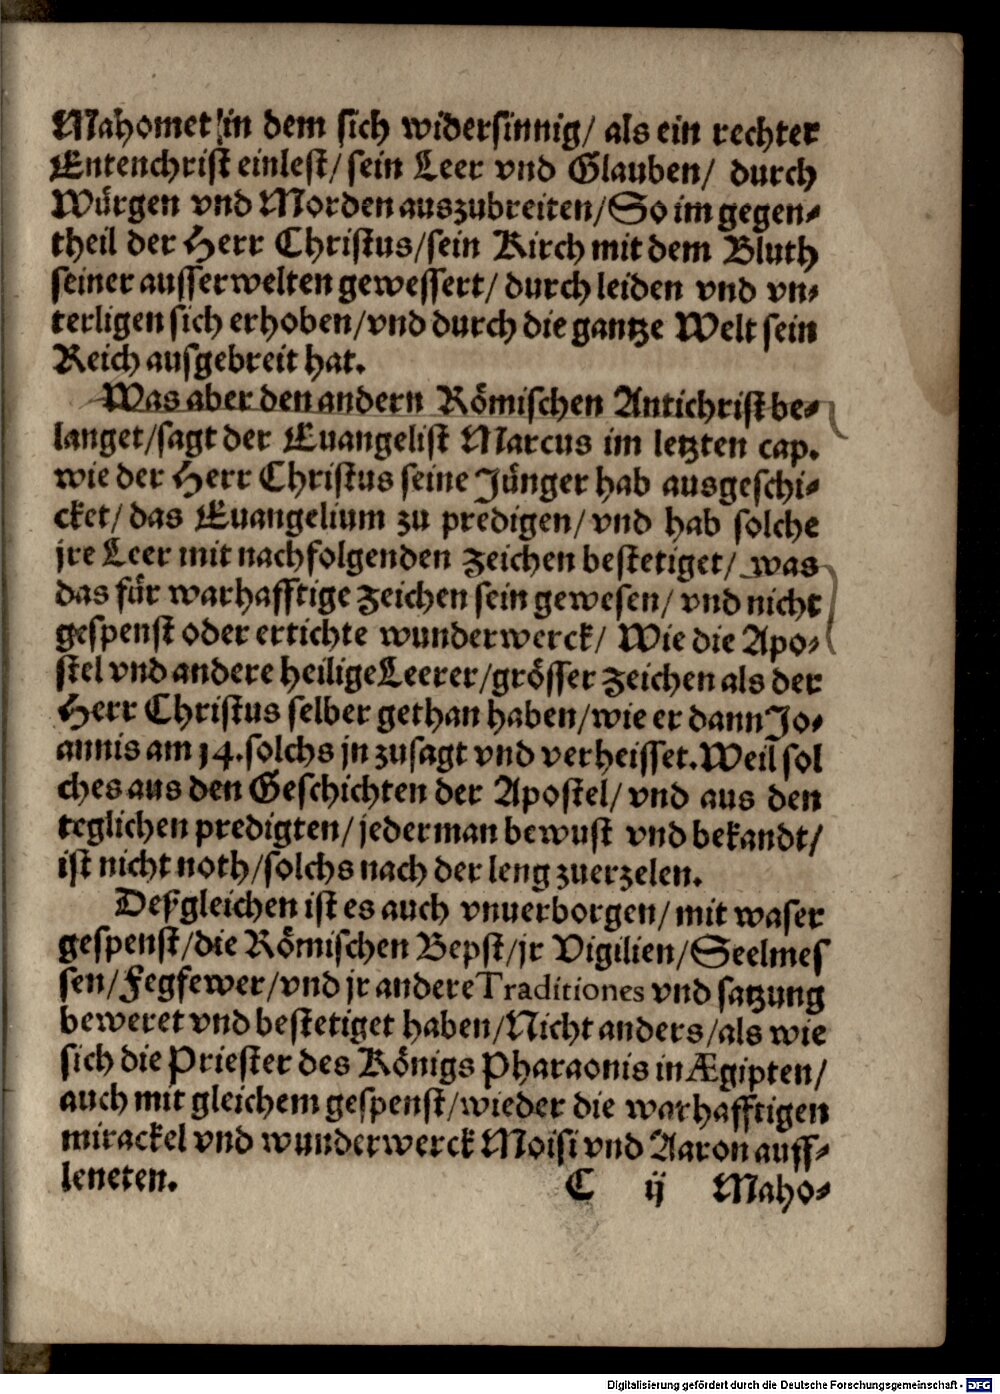 Mahomet in dem sich widersinnig/ als ein rechter
Entenchrist einlest/ sein Leer vnd Glauben/ durch
Würgen vnd Morden auszubreiten/ So im gegen-
theil der Herr Christus/ sein Kirch mit dem Bluth
seiner ausserwelten gewessert/ durch leiden vnd vn-
terligen sich erhoben/ vnd durch die gantze Welt sein
Reich ausgebreit hat.
Was aber den andern Römischen Antichrist be-
langet/ sagt der Euangelist Marcus im letzten cap.
wie der Herr Christus seine Jünger hab ausgeschi-
cket/ das Euangelium zu predigen/ vnd hab solche
jre Leer mit nachfolgenden zeichen bestetiget/ was
das für warhafftige zeichen sein gewesen/ vnd nicht
gespenst oder ertichte wunderwerck/ Wie die Apo-
stel vnd andere heilige Leerer/ grösser zeichen als der
Herr Christus selber gethan haben/ wie er dann Jo-
annis am 14. solchs jn zusagt vnd verheisset. Weil sol
ches aus den Geschichten der Apostel/ vnd aus den
teglichen predigten/ jederman bewust vnd bekandt/
ist nicht noth/ solchs nach der leng zuerzelen.
Deßgleichen ist es auch vnuerborgen/ mit waser
gespenst/ die Römischen Bepst/ jr Vigilien/ Seelmes
sen/ Fegfewer/ vnd jr andere Traditiones vnd satzung
beweret vnd bestetiget haben/ Nicht anders/ als wie
sich die Priester des Königs Pharaonis in Ægipten/
auch mit gleichem gespenst/ wieder die warhafftigen
mirackel vnd wunderwerck Moisi vnd Aaron auff-
leneten.
C ij Maho-
Digitalisierung gefördert durch die Deutsche Forschungsgemeinschaft - DFG